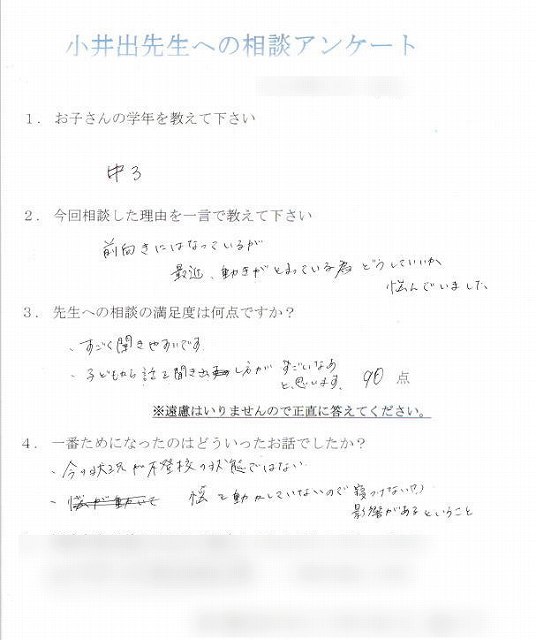 小井出先生への相談アンケート
1. お子さんの学年を教えて下さい
中3
2. 今回相談した理由を一言で教えて下さい
前向きにはなっているが
最近、動きがとまっている為 どうしていいか
悩んでいました
3. 先生への相談の満足度は何点ですか?
・すごく聞きやすいです
・子どもから話を聞き出し方が すごいなあ
と思います。 90 点
※遠慮はいりませんので正直に答えてください。
4. 一番ためになったのはどういったお話でしたか?
・今の状況が不登校の状態ではない
・ を動かしていないので 寝つけない(?)
影響があるということ